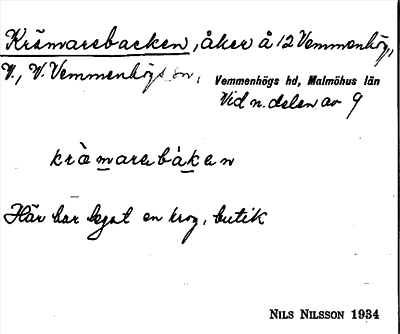 Krämarebacken, åker å 12 Vemmenhög,
V., V. Vemmenhögs sn,
Vemmenhögs hd, Malmöhus län
Vid n. delen av 9
kràmarebáken
Här har legat en krog, butik
NILS NILSSON 1934